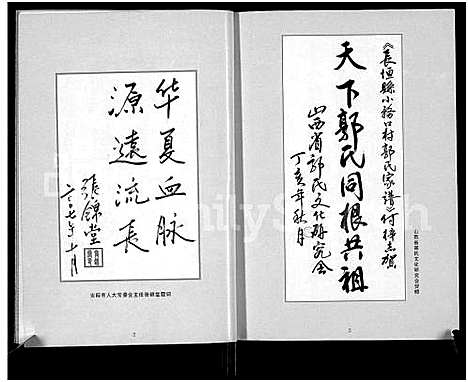 《長垣縣小務口村郭氏家谱》付梓志贺
天下郭氏同根共祖
山西省郭氏文化研究会
丁亥年秋月
华夏血脉
源遠流長
張錦堂
二〇〇七年十月